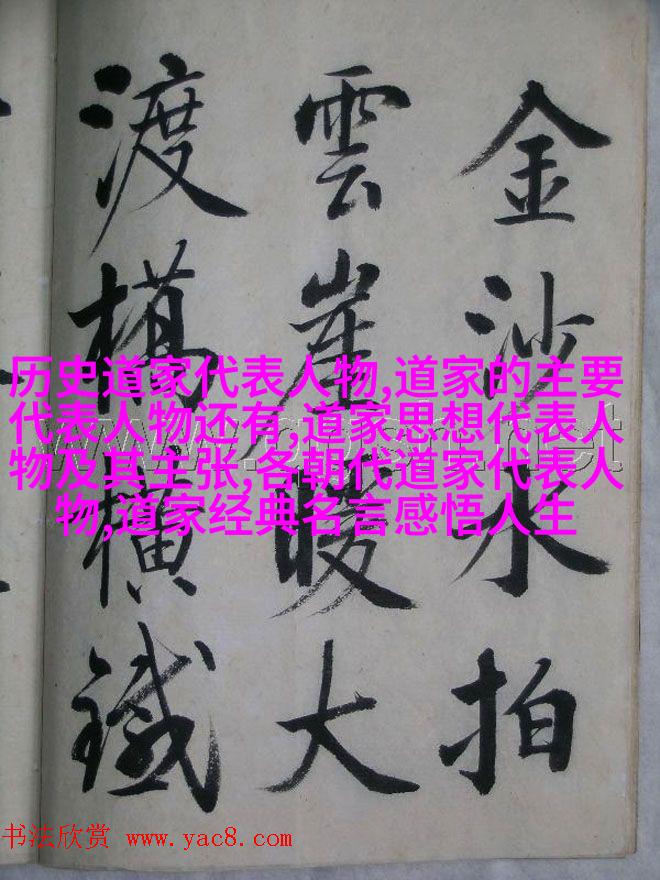 金沙水拍
雲崖暖大
渡橋橫鐵
历史道家代表人物,道家的主要
代表人物还有,道家思想代表人
物及其主张,各朝代道家代表人
物,道家经典名言感悟人生
书法欣赏 www.yac8.com